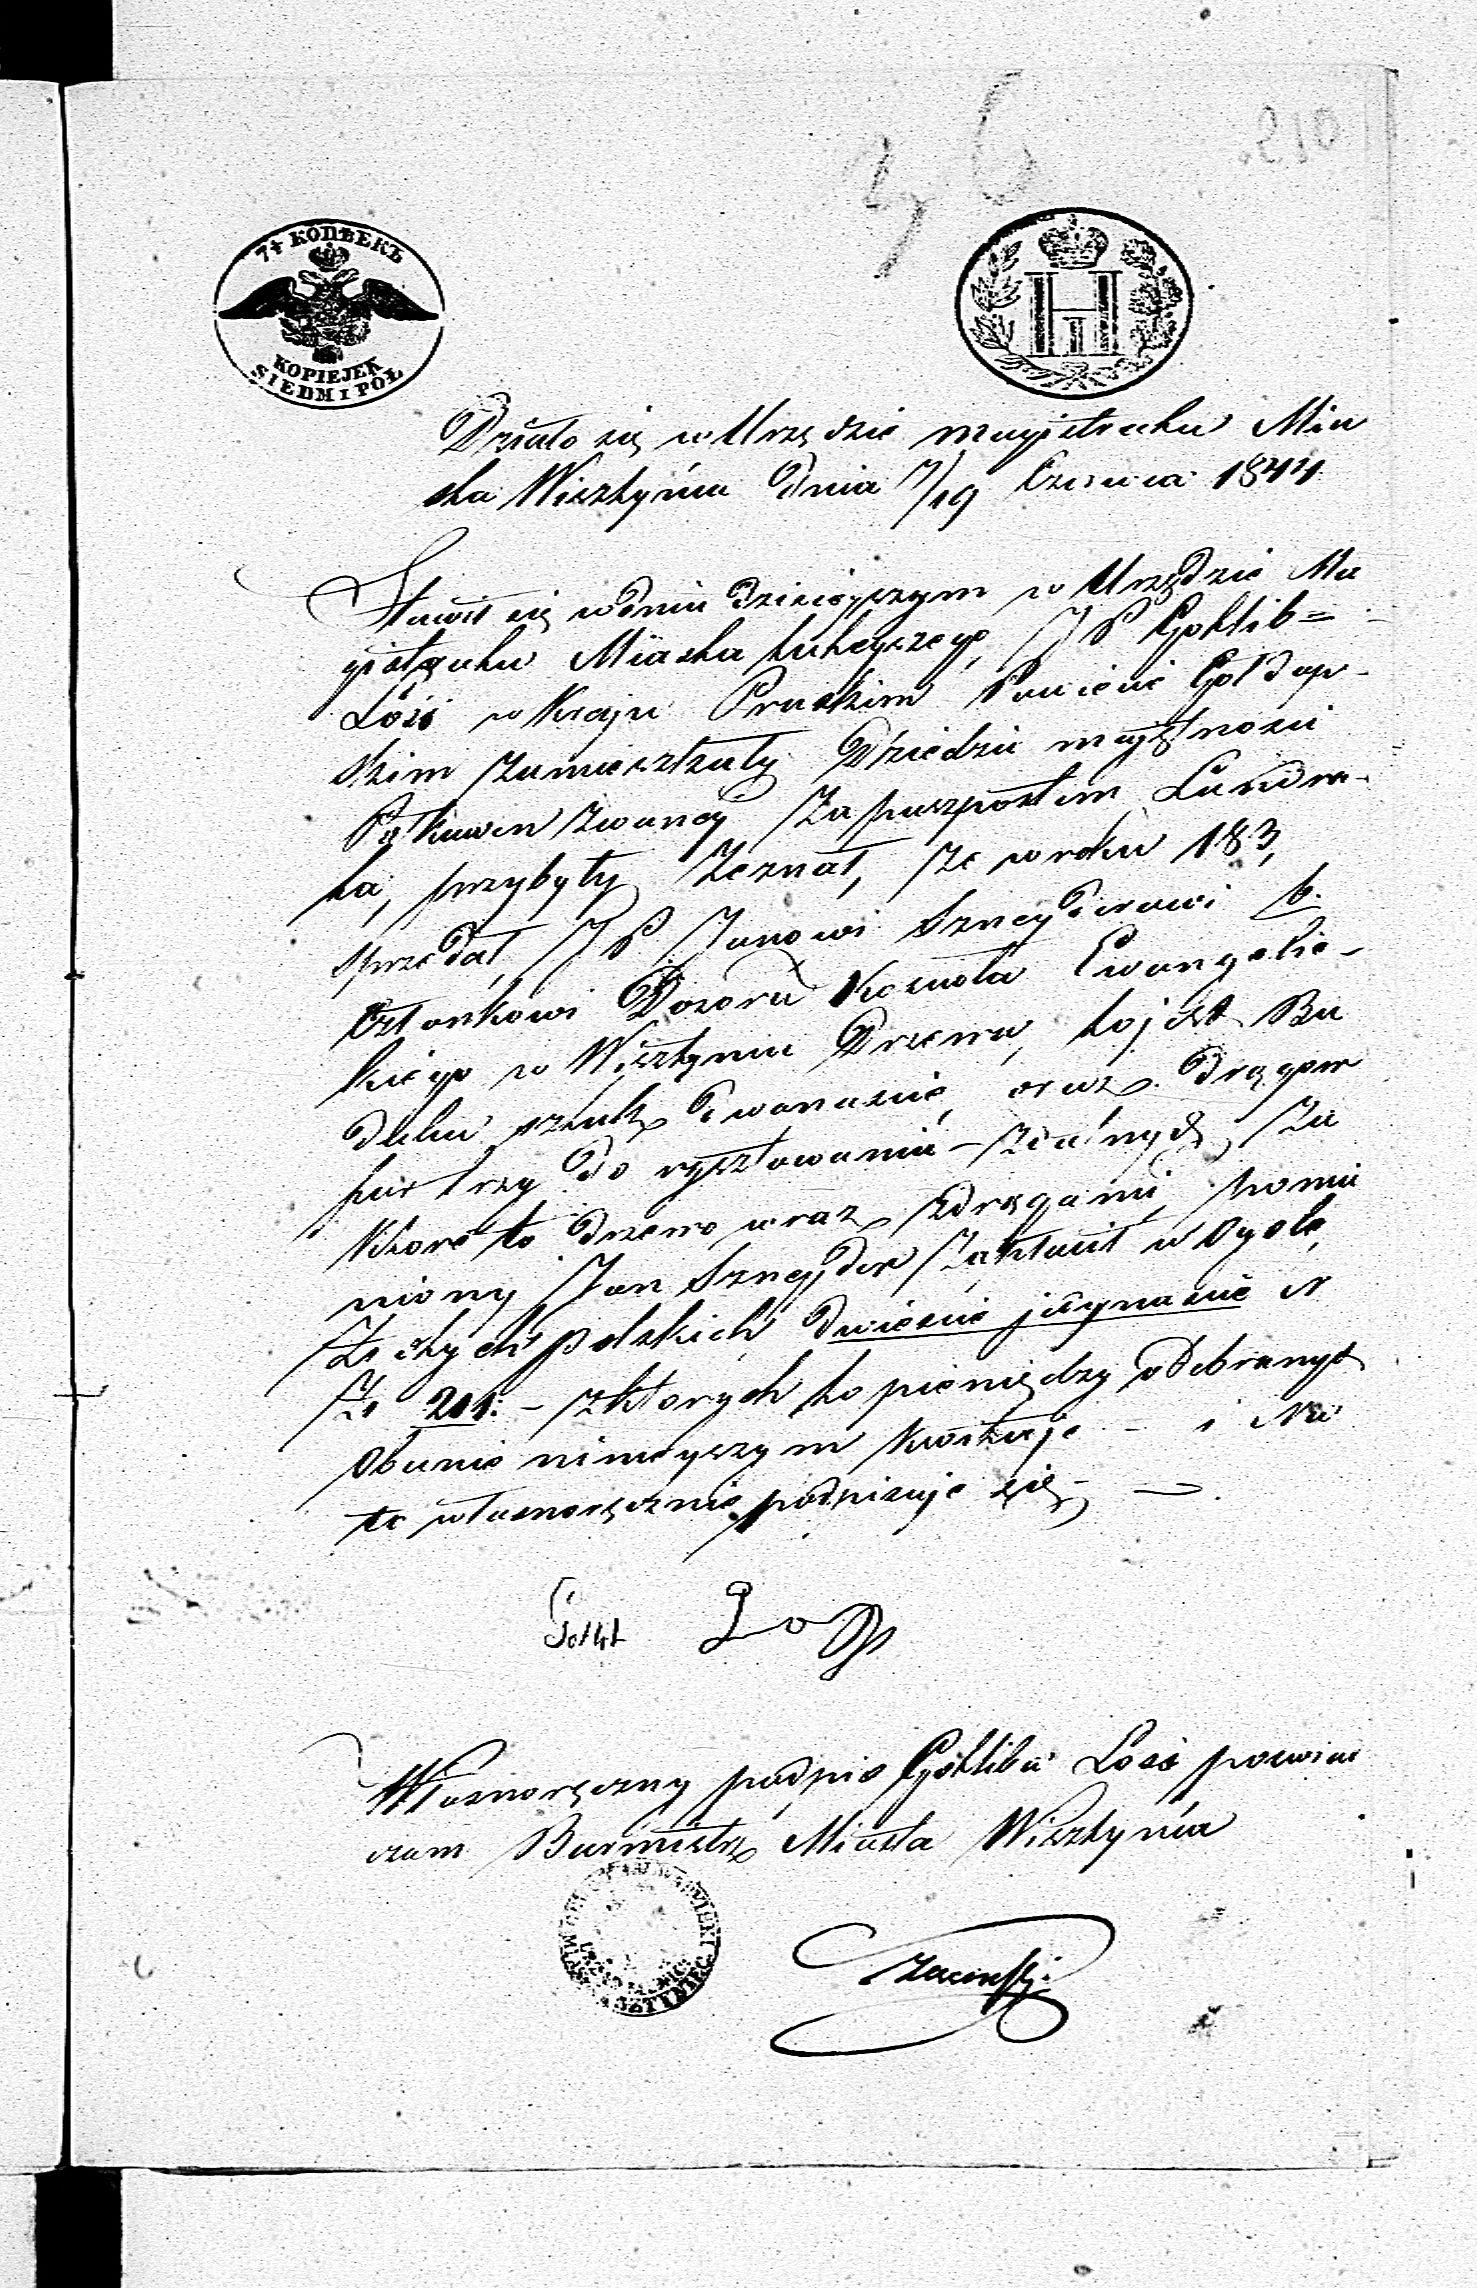 7½ КОПѢЕКЪ
KOPIEJEK
SIEDM I PÓŁ
Działo się w Urzędzie Magistrachu Mia
sta Wisztyńca dnia 7/19 Czerwca 1844
Stawił się w dniu dzisieyszym w Urzędzie Ma
gistrachu Miasta tuteyszego, JP Gottlib=
Łoss w Kraju Pruskim Powiecie Gołdap-
skim zamieszkały Dziedzic majętności
zwaney za paszportem Landra-
ta, przybyły zeznał, że w roku 183
sprzedał JP Janowi Szneyderowi b.
Członkowi Dozoru Kościoła Ewangelic-
kiego w Wisztyńcu Drzewa, to jest Bu
dulcu sztuk dwanaście, oraz drągow
par trzy do rysztowania zdatnych, za
które to drzewo wraz z drągami, pomie
niony Jan Szneyder zapłacił w ogole,
Złotych polskich dwieście jedynaście N
Zł 211.- z których to pieniędzy odebranych
obecnie ninieyszym kwituje - i na
to własnoręcznie podpisuje się -
Własnoręczny podpis Gottliba Łoss poswiad
czam Burmistrz Miasta Wisztyńca